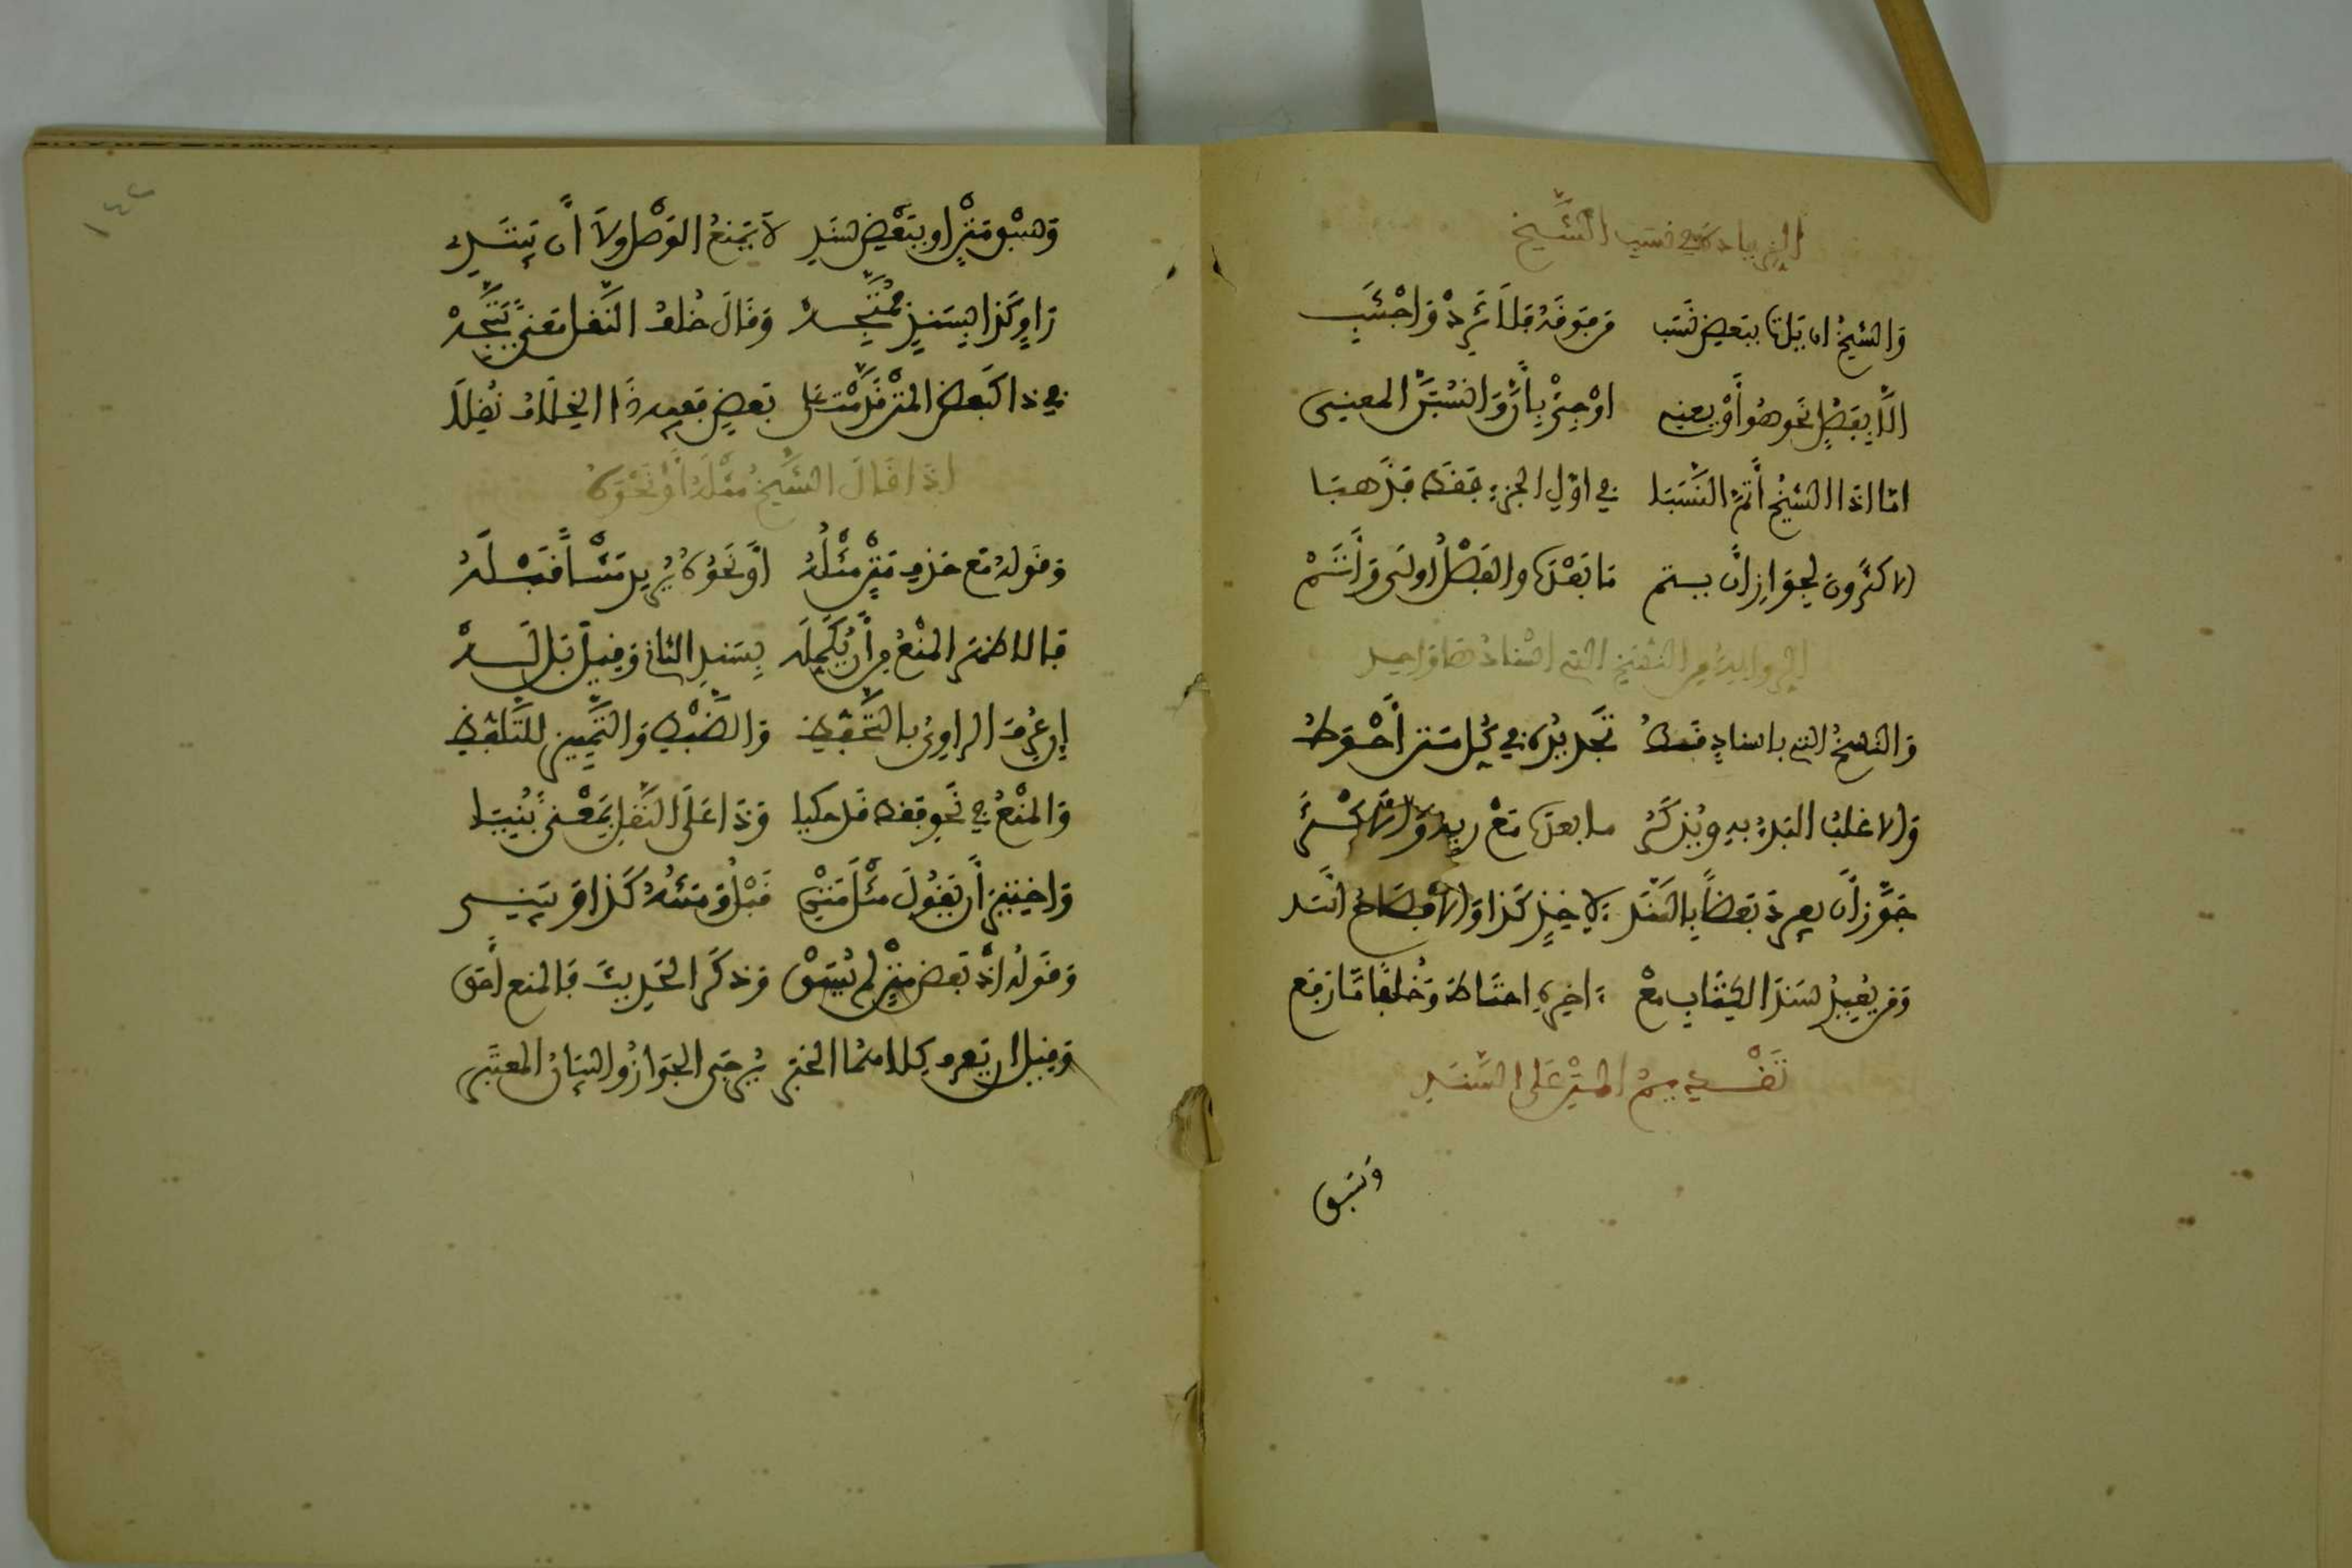 الزيادة في نسب الشيخ
والشيخ ان يات ببعض نسب من فوقه فلا تزد واجتنب
الا بفصل نحو هو أو يعنى او جئ بأن وانسبن المعنى
اما اذا الشيخ أتم النسبا في اول الجزء فقط فذهبا
الاكثرون لجواز أن يتم ما بعده والفصل أولى وأتم
الرواية من النسخ التي اسنادها واحد
والنسخ التي باسناد فقط تجديده في كل متن أحوط
والاغلب البدء به ويذكر ما بعده مع وبه والاكثر
جوز أن يفرد بعضا بالسند لاخذ كذا والافصاح اسد
ومن يعيد سند الكتاب مع اخره احتاط وخلفا ما رفع
تقديم المتن على السند
وسبق
١٤٢
وسبق متن او ببعض سند لا يمنع الوصل ولا أن يبتدي
راو كذا بسند فمتجه وقال خلف النقل معنى يتجه
في ذا كبعض المتن قدمت على بعض ففيه ذا الخلاف نقلا
اذا قال الشيخ مثله أو نحوه
وقوله مع حذف متن مثله أو نحوه يريد متنا قبله
فالاظهر المنع من أن يكمله بسند الثاني وقيل بل له
إن عرف الراوي بالتحفظ والضبط والتمييز للتلفظ
والمنع في نحو فقط قد حكيا وذا على النقل بمعنى بنيا
واختير أن يقول مثل متن قبل ومتنه كذا ويبني
وقوله اذ بعض متن لم يسق وذكر الحديث فالمنع أحق
وقيل ان يعرف كلاهما الخبر يرجى الجواز والبيان المعتبر